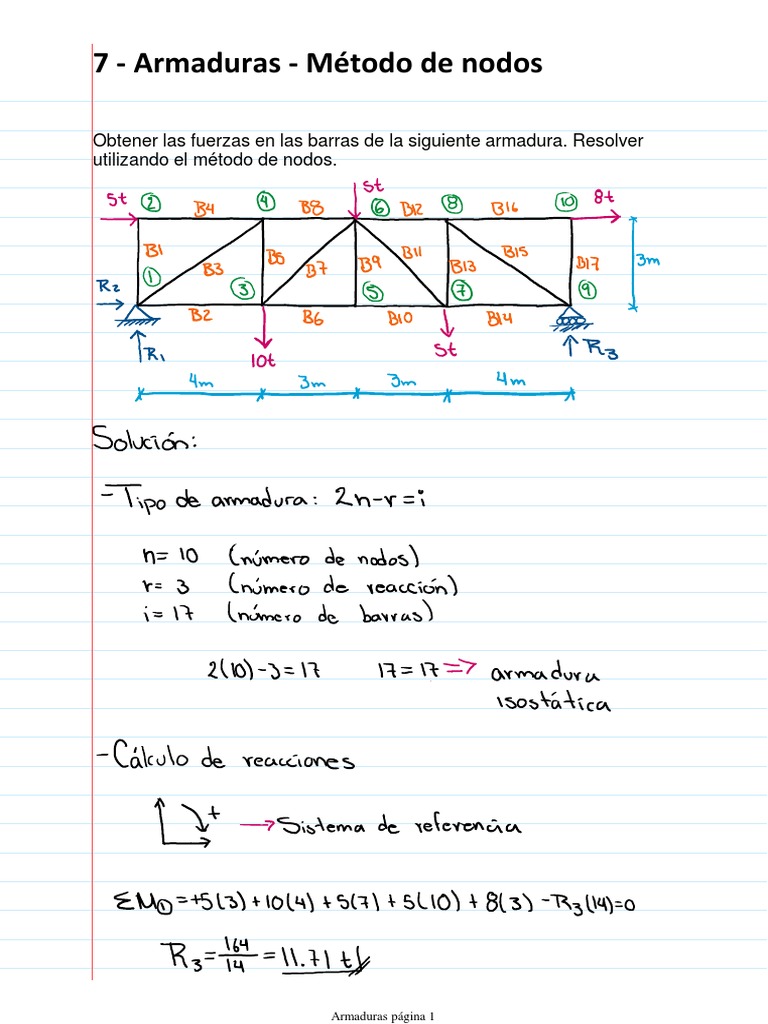 7 - Armaduras - Método de nodos
Obtener las fuerzas en las barras de la siguiente armadura. Resolver
utilizando el método de nodos.
5t
5t 2 B4 4 B8 6 B12 8 B16 10 8t
B1 1 B3 B5 B7 B9 B11 B13 B15 B17 3m
R2 3 5 7 9
B2 B6 B10 B14
R1 10t 5t R3
4m 3m 3m 4m
Solución:
- Tipo de armadura: 2n-r=i
n= 10 (número de nodos)
r= 3 (número de reacción)
i= 17 (número de barras)
2(10)-3=17 17=17 => armadura
isostática
- Cálculo de reacciones
+ → Sistema de referencia
ΣM①=+5(3)+10(4)+5(7)+5(10)+8(3)-R3(14)=0
R3=164/14=11.71 t
Armaduras página 1